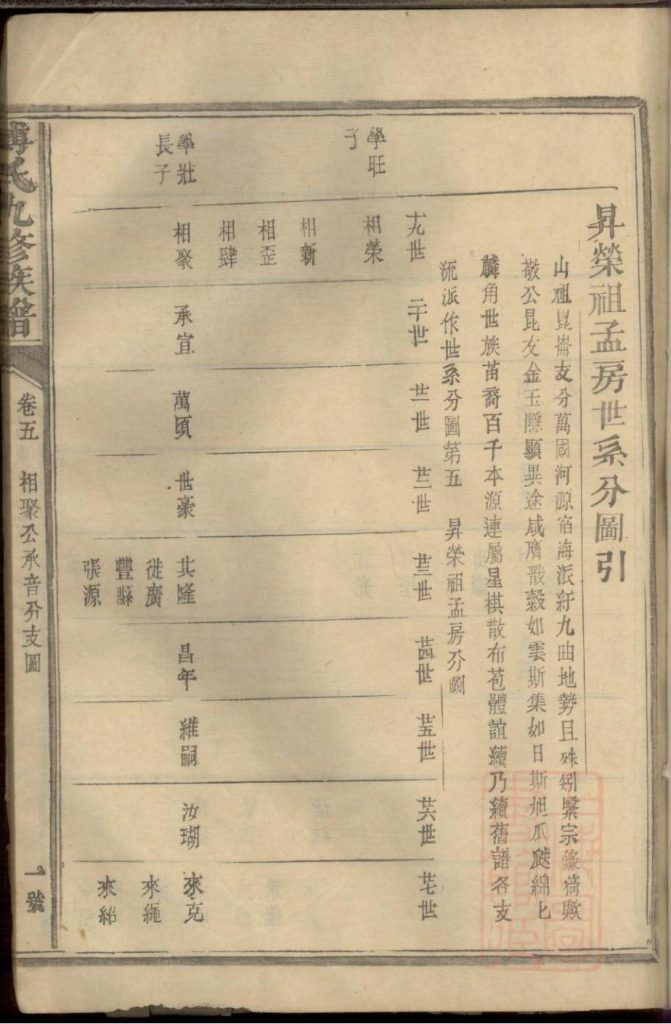 昇榮祖孟房世系分圖引
山祖崑崙支分萬國河源宿海派紆九曲地勢且殊矧繄宗籙猗歟
敬公昆友金玉隱顯異途咸膺戩穀如雲斯集如日斯旭瓜瓞綿匕
麟角世族苗裔百千本源連屬星棋散布苞體誼續乃續舊譜各支
流派作世系分圖第五 昇榮祖孟房分圖
十九世 二十世 廿一世 廿二世 廿三世 廿四世 廿五世 廿六世 廿七世
學旺子 相榮
相新
相歪
相肆
學壯長子 相聚 承宣 萬頃 世豪 其隆 昌年 維嗣 汝瑚 來克
徙廣 來繩
豐縣 來紹
張源
氏九修族譜
卷五 相聚公承音分支圖
一號